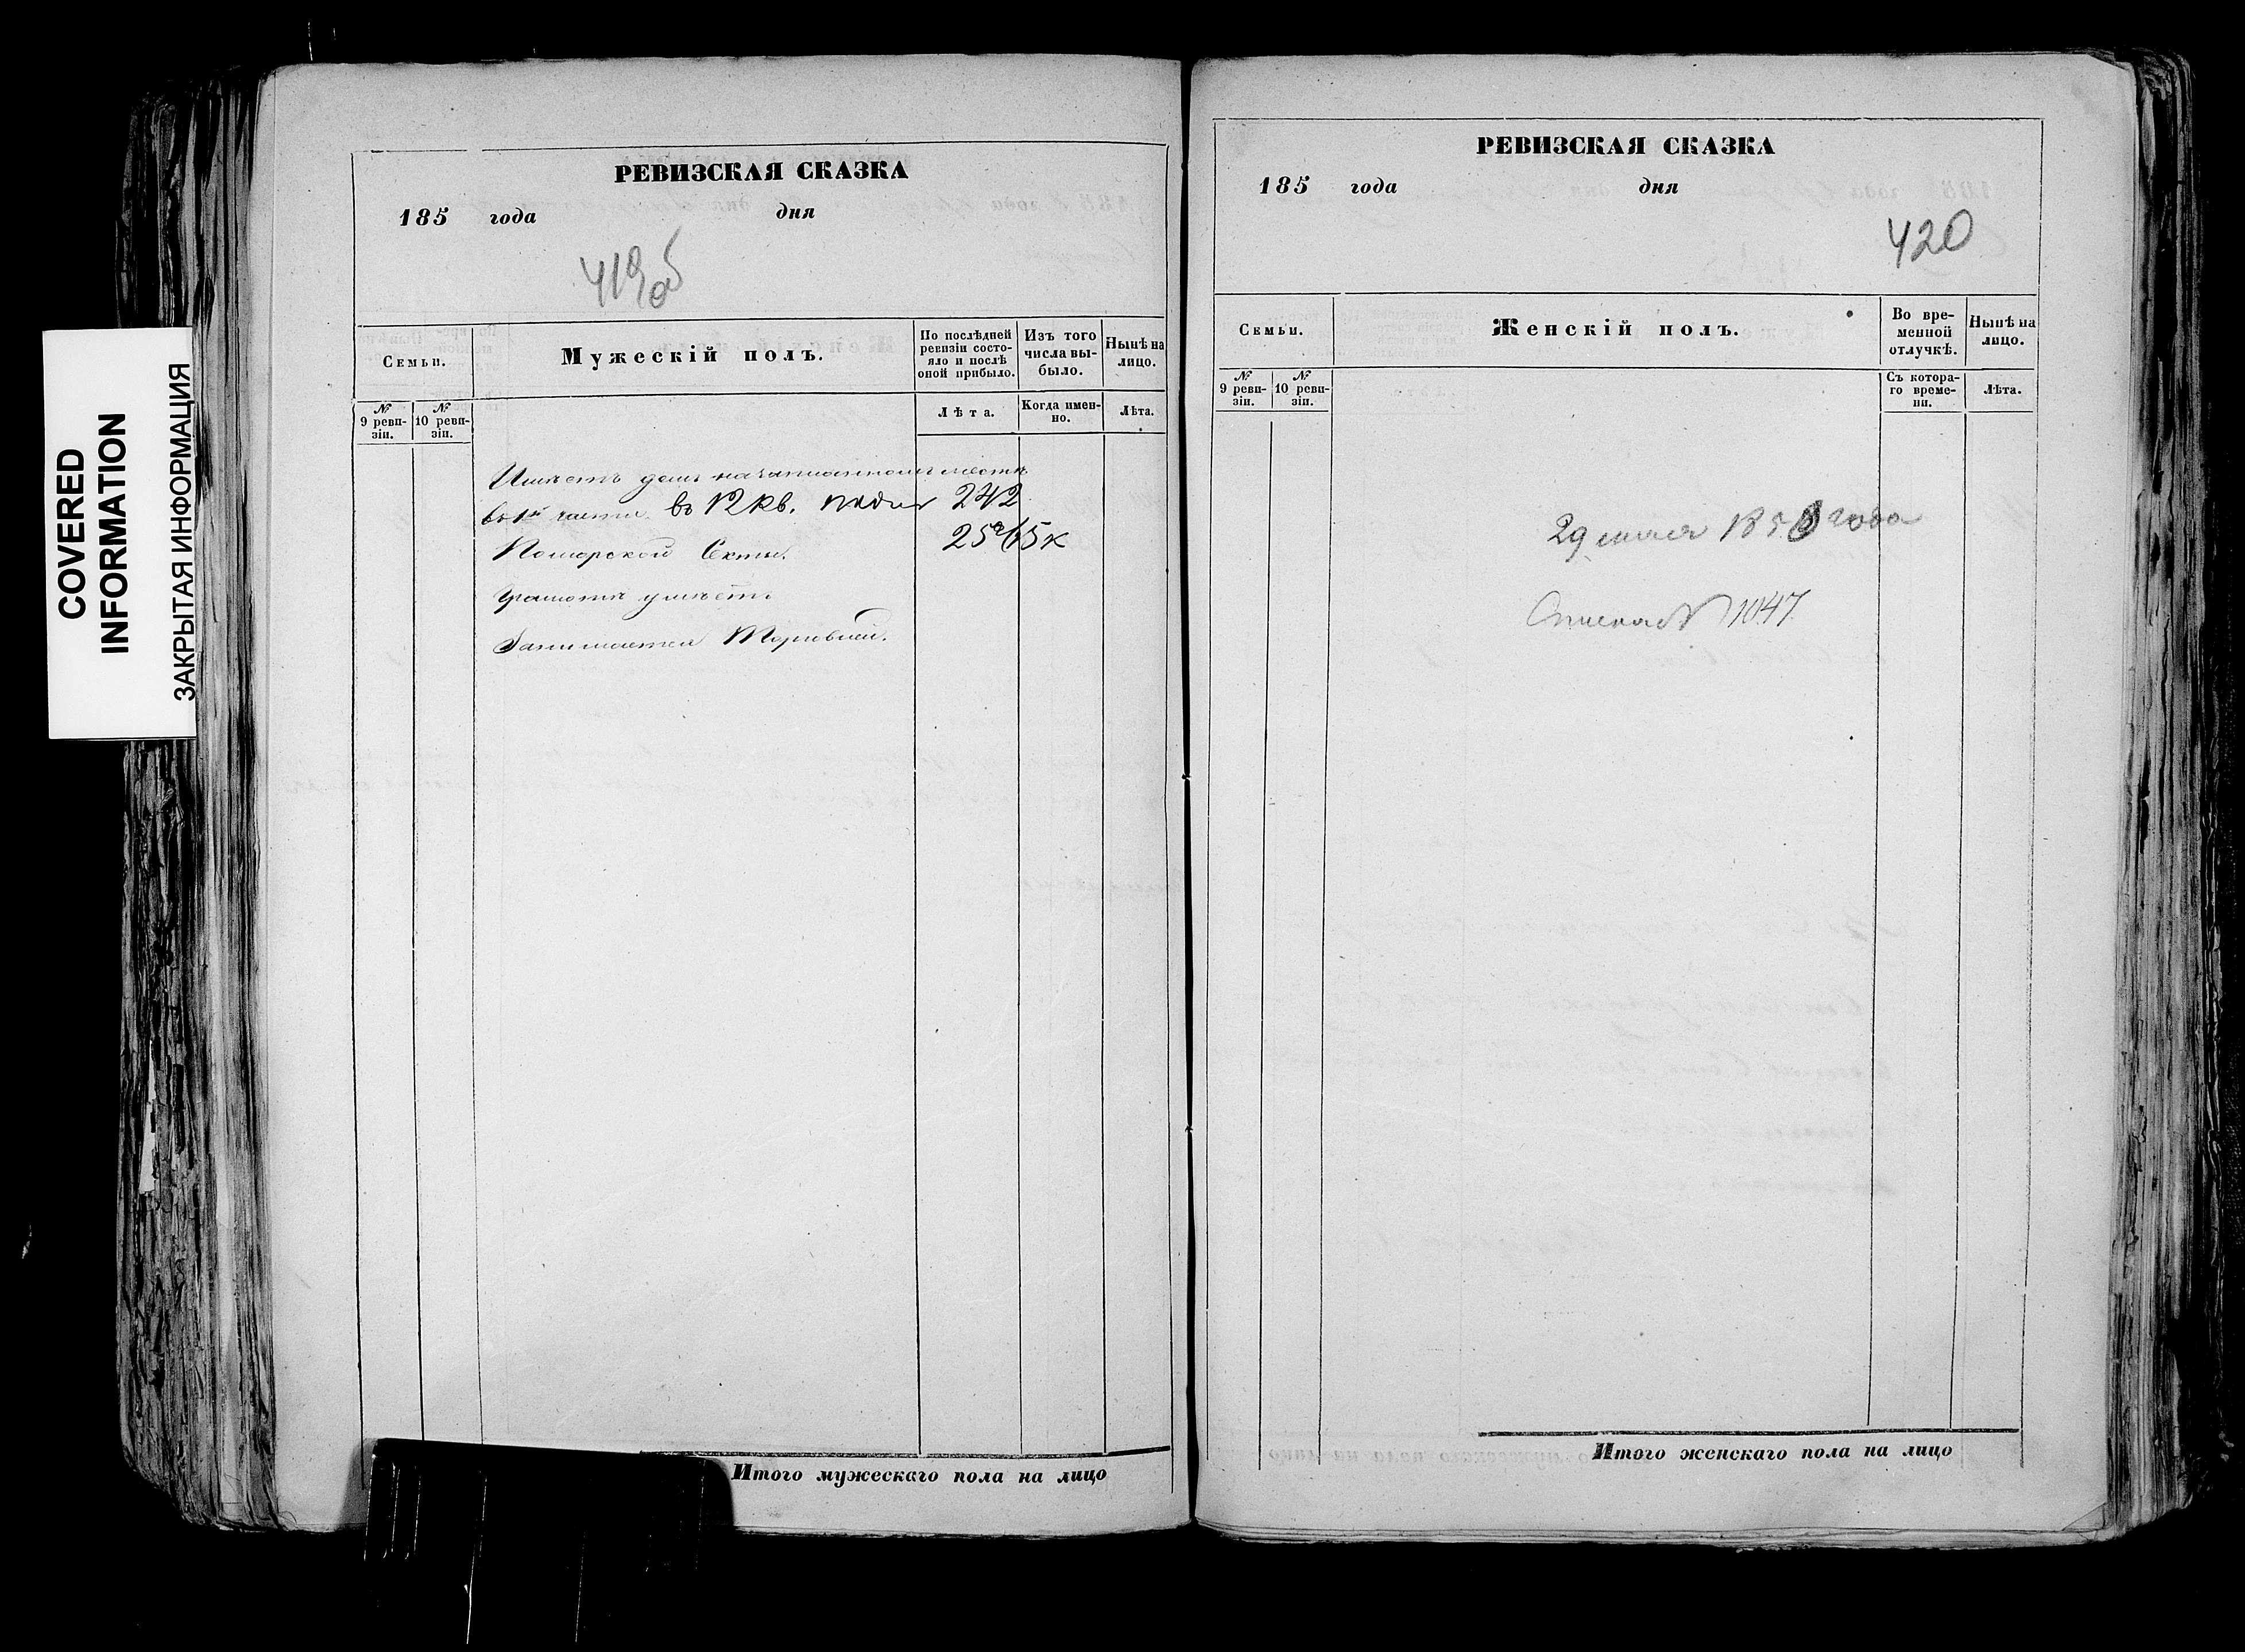 COVERED
INFORMATION
ЗАКРЫТАЯ ИНФОРМАЦИЯ
РЕВИЗСКАЯ СКАЗКА
185 года дня
419 об
Семьи.
Мужескій полъ.
По послѣдней ревизіи состояло и послѣ оной прибыло.
Изъ того числа выбыло.
Нынѣ на лицо.
№ 9 ревизіи.
№ 10 ревизіи.
Лѣта.
Когда именно.
Лѣта.
Имѣетъ домъ на
въ 1й части въ 12 кв. подъ 242
Поморской Секты. 25 р 65 к
Грамотѣ умѣетъ
Занимается Торговлей.
Итого мужескаго пола на лицо
РЕВИЗСКАЯ СКАЗКА
185 года дня
420
Семьи.
Женскій полъ.
Во временной отлучкѣ.
Нынѣ на лицо.
№ 9 ревизіи.
№ 10 ревизіи.
Съ котораго времени.
Лѣта.
29 мая 185 года
№ 1047
Итого женскаго пола на лицо